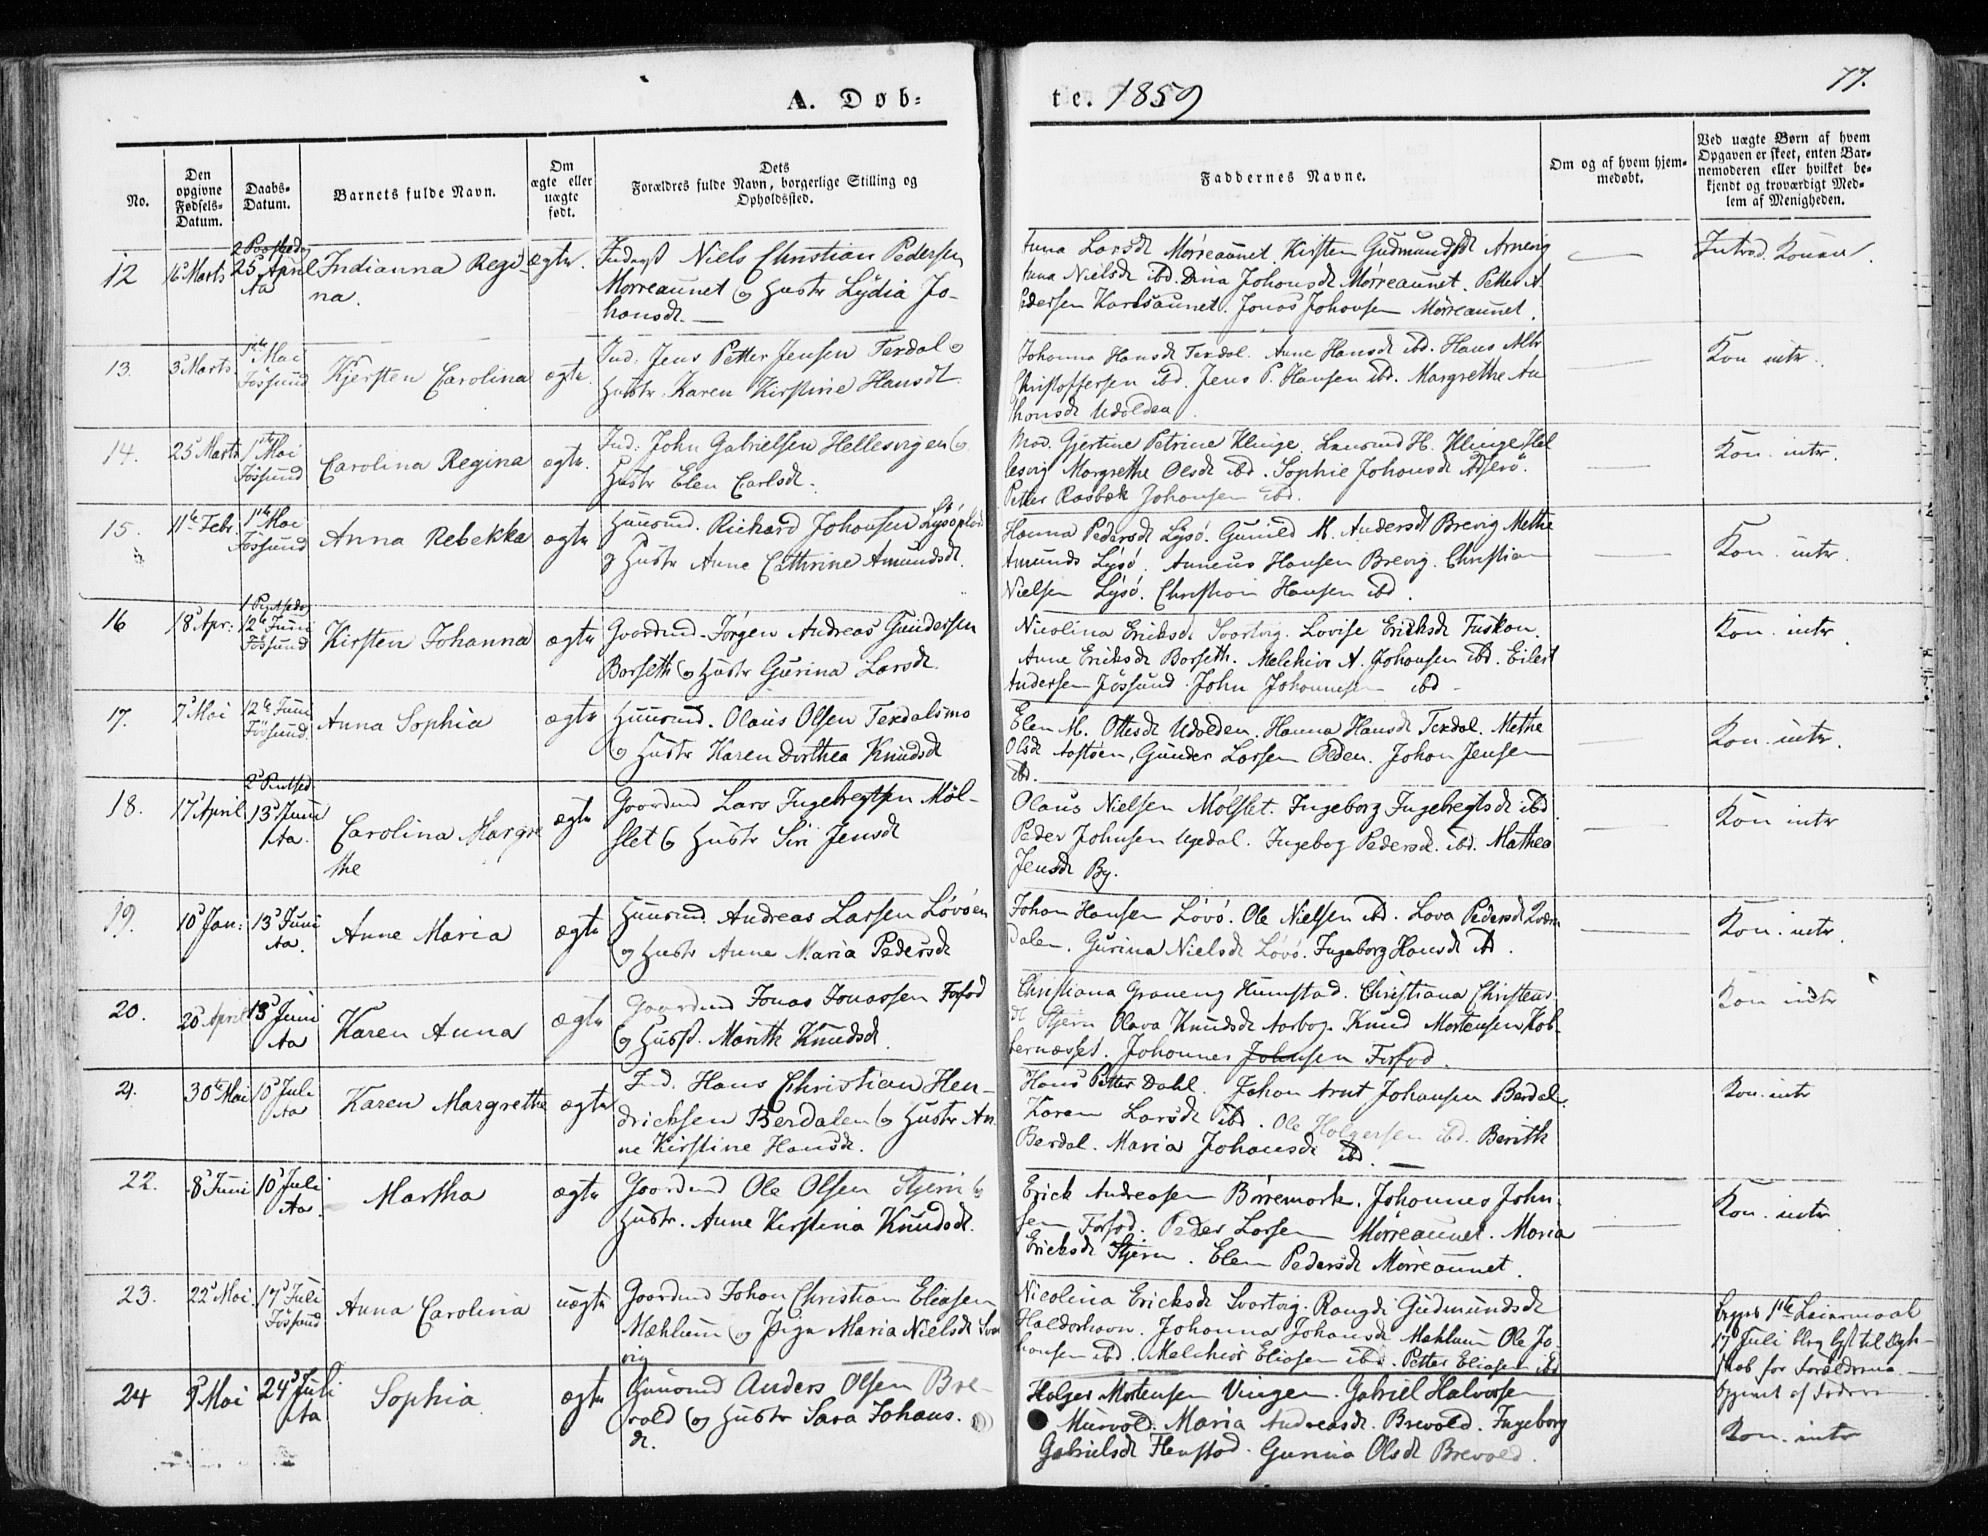 77.
A. Døb-
te. 1859
No.
Den opgivne Fødsels-Datum.
Daabs-Datum.
Barnets fulde Navn.
Om ægte eller uægte født.
Dets Forældres fulde Navn, borgerlige Stilling og Opholdssted.
Faddernes Navne.
Om og af hvem hjemmedøbt.
Ved uægte Børn af hvem Opgaven er skeet, enten Barnemoderen eller hvilket bekjendt og troværdigt Medlem af Menigheden.
12 16 Marts 25 April Aa Indianna Regi- ægte. Niels Christian Pedersen
na. Mørreaunet og Hustr Lydia Jo-
hansdt.
Anna Larsdt Mørreaunet. Kirsten Gudmundsdt Arnevig
Nielsdt ibd. Dina Johansdt Mørreaunet. Petter A.
Pedersen Karlsaunet. Jonas Johansen Mørreaunet.
Introd. Konen.
13. 3 Marts 1ste Mai Jøssund Kjersten Carolina ægte. Ind. Jens Petter Jensen Terdal og
Hustr. Karen Kirstine Hansdt.
Johanna Hansdt Terdal. Anne Hansdt ibd. Hans Alb
Christoffersen ibd. Jens P. Hansen ibd. Margrethe An
Udolden.
Kon intr.
14. 25 Marts 1ste Mai Jøssund Carolina Regina ægte. Ind: John Gabrielsen Hellesvigen og
Hustr Elen Carlsdt.
Mad. Gjertine Petrine Klinge. H. Klinge Hel
lesvig Margrethe Olsdt ibd. Sophie Johansdt
Petter Rosbæk Johansen ibd.
Kon. intr.
15. 11te Febr. 1ste Mai Jøssund Anna Rebekka ægte Huusmd. Richard Johansen Lysø
og Hustr Anne Cathrine Amundsdt.
Hanna Pedersdt Lysø. Gunild M. Andersdt Brevig Methe
Amunds Lysø. Anneus Hansen Brevig. Christian
Nielsen Lysø. Christian Hansen ibd.
Kon. intr.
16 18 Apr: 12te Juni Jøssund Kirsten Johanna ægte Gaardmd. Jørgen Andreas Gundersen
Borseth og Hustr Gurina Larsdt.
Nicolina Ericksdt Svartvig. Lovise Ericksdt
Anne Ericksdt Borseth. Melchior A. Johansen ibd. Eilert
Andersen Jøssund. John Johannesen ibd.
Kon. intr
17. 7 Mai 12te Juni Jøssund. Anna Sophia ægte Huusmd. Olaus Olsen Terdalsmo
og Hustr Karen Dorthea Knudsdt
Elen M. Ottesdt Udolden. Hanna Hansdt Terdal. Methe
Olsdt Gunder Larsen Olden. Johan Jensen
ibd.
Kon. intr.
18. 17 April 13 Juni Aa. Carolina Margre ægte Gaardmd Lars Ingebregtsen Møl-
the slet og Hustr Siri Jensdt
Olaus Nielsen Mølslet. Ingeborg Ingebregtsdt ibd.
Peder Johnsen Ugedal. Ingeborg Pedersdt. ibd. Mathea
Jensdt By.
Kon intr
19. 10 Jan: 13 Juni Aa. Anne Maria ægte Huusmd. Andreas Larsen Løvøen
og Hustr Anne Maria Pedersdt
Johan Hansen Løvø. Ole Nielsen ibd. Lava Pedersdt
dalen. Gurina Nielsdt Løvø. Ingeborg Hansdt ibd.
Kon. intr.
20. 20 April 13 Juni Aa Karen Anna ægte Gaardmd Jonas Jonassen Forfod
og Hust. Marith Knudsdt.
Christiana Humstad. Christiana Christens-
dt Stjern Olava Knudsdt Aarbog. Knud Mortensen Kob-
bernæsset. Johannes Johnsen Forfod.
Kon intr
21. 30te Mai 10 Juli Aa Karen Margrethe ægte Ind. Hans Christian Hen-
dricksen Berdalen og Hustr An-
ne Kirstine Hansdt.
Hans Petter Dahl. Johan Arnt Johansen Berdal.
Karen Larsdt ibd. Ole Holgersen ibd. Berith
Berdal. Maria Johansdt ibd.
Kon. intr
22. 8 Juni 10 Juli Aa. Martha ægte Gaardmd Ole Olsen Stjern og
Hustr. Anne Kirstina Knudsdt.
Erick Andreasen Børremark. Johannes John-
sen Forfod. Peder Larsen Mørreaunet. Maria
Ericksdt Stjern. Elen Pedersdt Mørreaunet.
Kon. intr
23. 22 Mai. 17 Juli Jøssund Anna Carolina uægte Gaardmd Johan Christian Eliasen
Mæhlum og Pige Maria Nielsdt Svart
vig
Nicolina Ericksdt Svartvig. Rangdi Gudmundsdt
Haldorhavn. Johanna Johansdt Mæhlum Ole Jo-
hansen ibd. Melchior Eliasen ibd. Petter Eliasen ibd
Begges 1ste Leiermaal
17 Juli blev lyst til Ægte-
skab for Forældrene
Opgivet af Faderen
24 9 Mai 24 Juli Aa Sophia ægte Huusmd Anders Olsen Bre-
vold og Hustr Sara Johans-
dt.
Holger Mortensen Vingen. Gabriel Halvorsen
Murvold. Maria Andreasdt. Brevold. Ingeborg
Gabrielsdt Flenstad. Gurina Olsdt Brevold.
Kon. intr